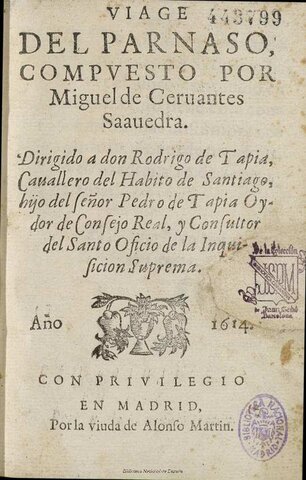 VIAGE
443799
DEL PARNASO,
COMPVESTO POR
Miguel de Ceruantes
Saauedra.
Dirigido a don Rodrigo de Tapia,
Cauallero del Habito de Santiago,
hijo del señor Pedro de Tapia Oy-
dor de Consejo Real, y Consultor
del Santo Oficio de la Inqui-
sicion Suprema.
De la Colección
de Juan Sedó
Barcelona
Año 1614.
CON PRIVILEGIO
EN MADRID,
Por la viuda de Alonso Martin.
BIBLIOTECA NACIONAL
MADRID
Biblioteca Nacional de España